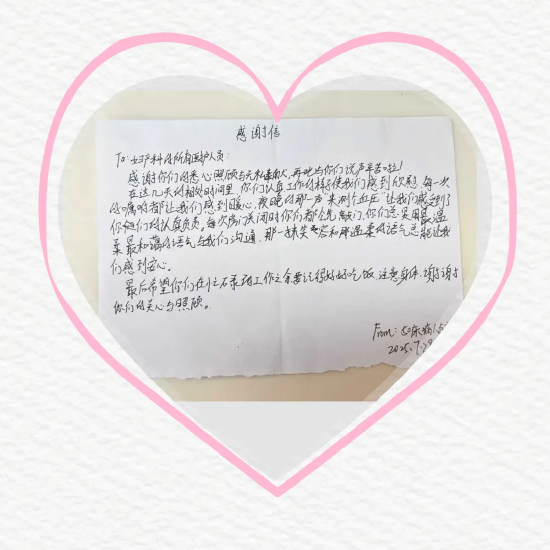 感谢信
To: 妇产科的所有医护人员:
感谢你们的悉心照顾与无私奉献,再此与你们说声辛苦啦!
在这几天的相处时间里,你们认真工作的样子使我们感到欣慰,每一次
的嘱咐都让我们感到暖心,夜晚的那一声"来测个血压"让我们感受到了
你们的认真负责。每次房门关闭时你们都会先敲门,你们总是用最温
柔最和蔼的语气与我们沟通,那一抹笑容和那温柔的语气总能让我
们感到安心。
最后希望你们在忙碌的工作之余要记得好好吃饭,注意身体,谢谢
你们的关心与照顾。
From: 50床病人
2025.7.29